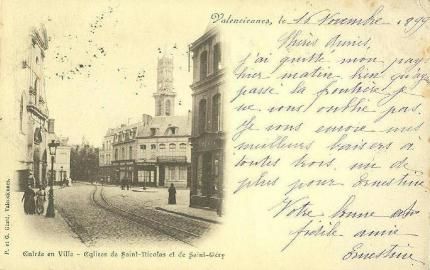 Valenciennes, le 16 Novembre 1899
Chères Amies,
j'ai quitté mon pays
hier matin bien qu'ayant
passé la frontière je
ne vous oublie pas.
Je vous envoie mes
meilleurs baisers à
toutes trois, un de
plus pour Ernestine.
Votre bonne
fidèle amie
Ernestine
Entrée en Ville - Eglises de Saint-Nicolas et de Saint-Géry
P. et G. Giard, Valenciennes.